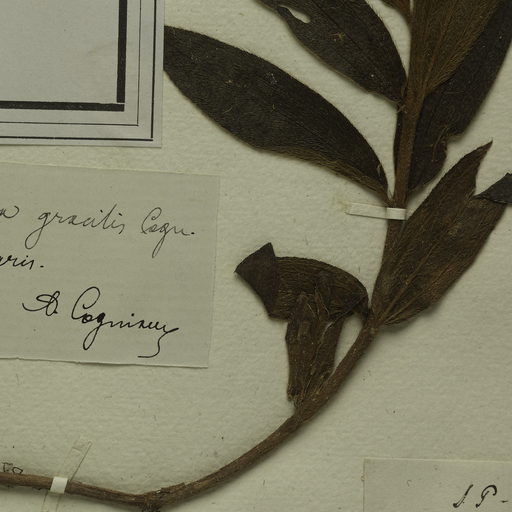 gracilis Cogn.
ris.
A. Cogniaux
S. P.